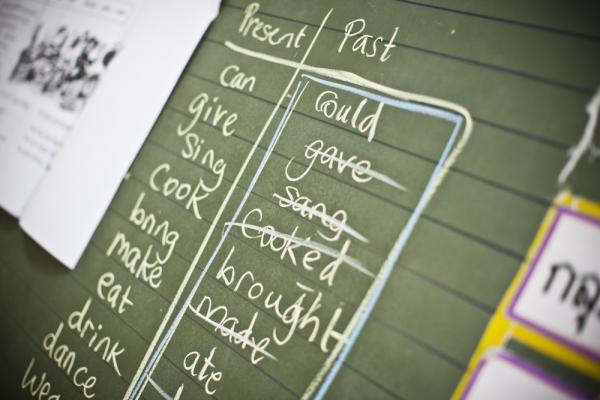 Present Past
Can Could
give gave
Sing Sang
Cook Cooked
bring brought
make made
eat ate
drink
dance